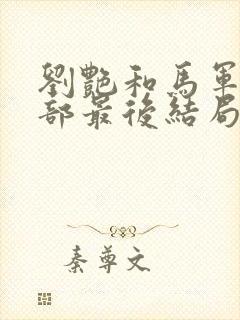 劉艷和馬軍
部最後結局
秦尊文